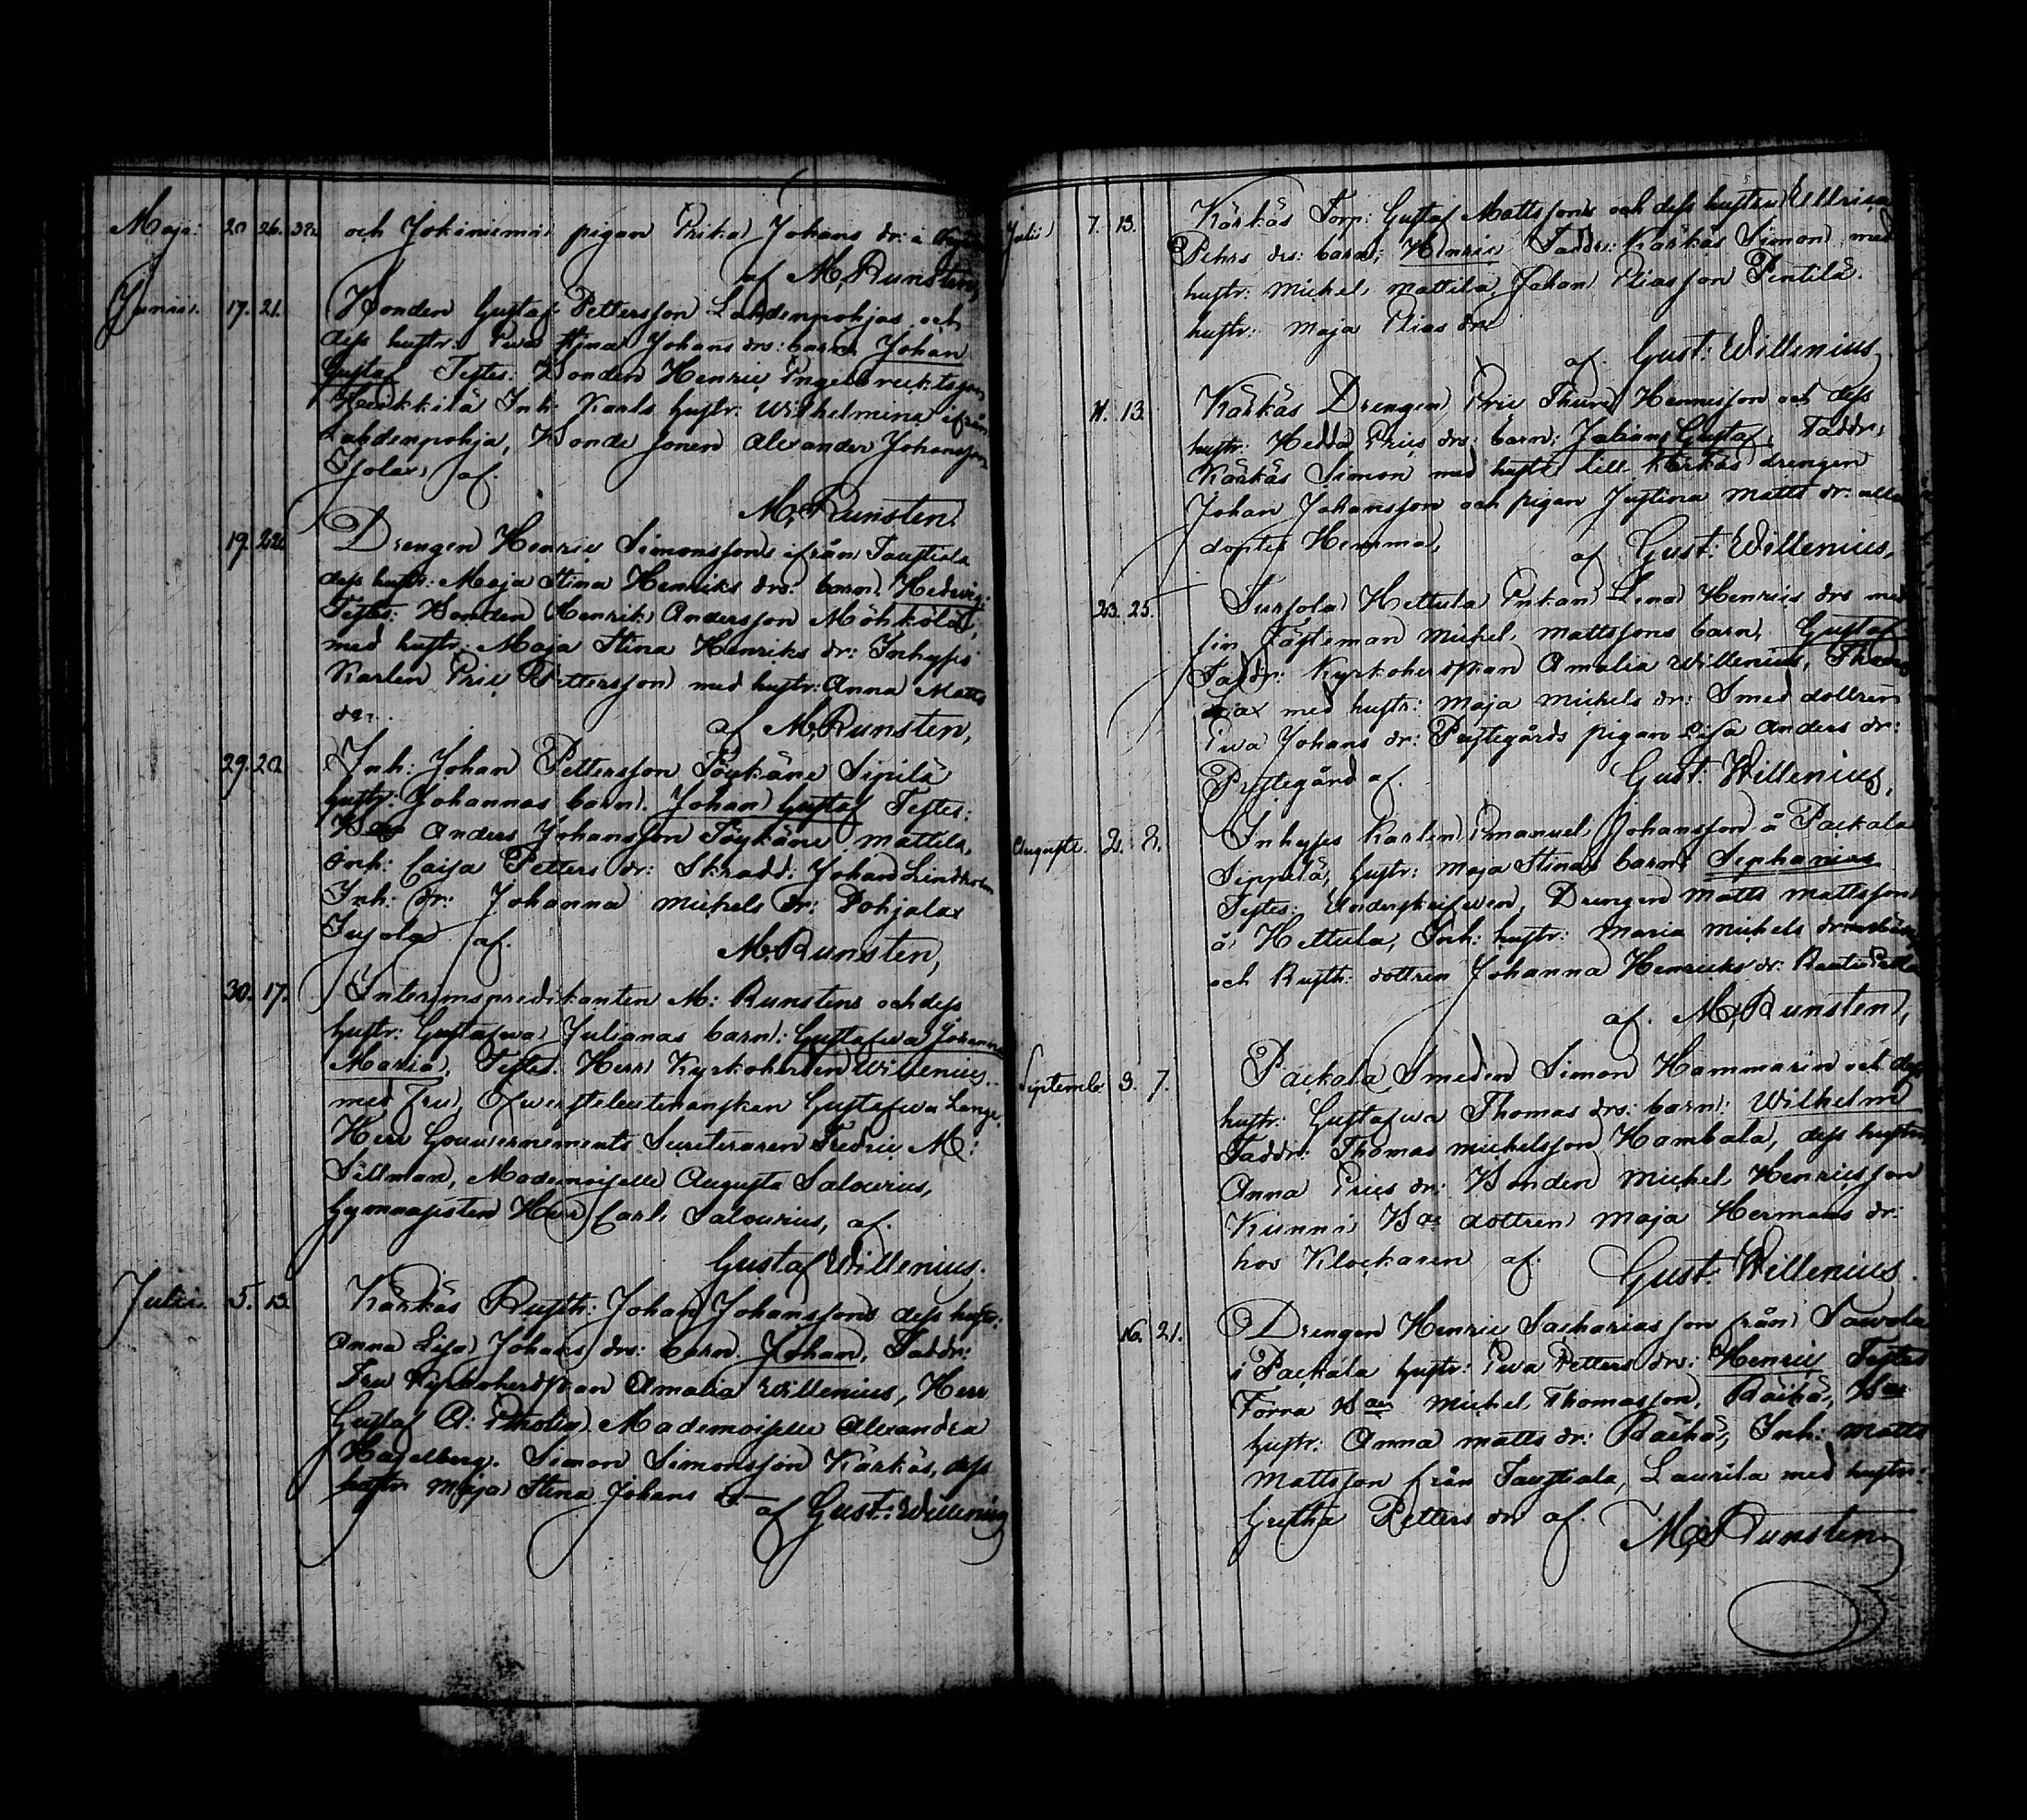 Maji. 20 26. och Jokiniemi pigan Erika Johans dr: i
af M. Runsten,
Junii. 17. 21. Bonden Gustaf Pettersson Lahdenpohjas och
dess hustr: Ewa Stina Johans drs: barn Johan
Gustaf Testes: Bonden Henric Engelbrecktsson
Heickkilä Inh: Karls hustr: Wilhelmina ifrån
Lahdenpohja, Bonde sonen Alexander Johansson
Isolax, af.
M. Runsten.
19. 22. Drengen Henric Simonssons ifrån Taustiala
dess hustr: Maja Stina Henriks drs: barn, Hedvig.
Testes: Bonden Henrik Andersson Möhkölä,
med hustr: Maja Stina Henriks dr: Inhyses
Karlen Eric Pettersson med hustr: Anna Matts
dr.
af M. Runsten,
29. 20 Inh: Johan Pettersson Töykäne Sipilä
hustr: Johannas barn. Johan Gustaf Testes:
Anders Johansson Töykäne Mattila,
Inh: Caisa Petters dr: Skradd: Johan Lindholm
Inh: dr: Johanna Michels dr: Pohjalax
af.
M. Runsten,
30. 17. Interimspredikanten M: Runstens och dess
hustr: Gustafwa Julianas barn: Gustafwa Johanna
Maria, Testes: Herr Kyrkoherden Willenius
med Fru, Öfwersteleutenanskan Gustafwa Lange,
Herr Gouvernements Secreteraren Fredric M:
Sillman, Mademoiselle Augusta Salovius,
Gymnasisten Herr Carl Salovius, af.
Gustaf Willenius.
Julii. 5. 13. Kärkäs Rusth: Johan Johanssons dess hustr:
Anna Lisa Johans drs: barn. Johan, Faddr:
Fru Kyrkoherdskan Amalia Willenius, Herr
Gustaf A: Mademoiselle Alexandra
Hagelberg. Simon Simonsson Kärkäs, dess
hustr Maja Stina Johans dr
af Gust: Willenius
Julii 7. 13. Kärkäs Torp: Gustaf Mattssons och dess hustru Ullrica
Pehrs drs: barn; Henric Faddr: Kärkäs Simon med
hustr: Michel Mattila, Johan Eliasson Pentilä.
hustr: Maja Elias dr
af Gust: Willenius
11. 13. Kärkäs Drengen Eric Thure Hennisson och dess
hustr: Hedda Erics drs: barn: Julians Gustaf, Faddr:
Kärkäs Simon med hustr till Kärkäs drengen
Johan Johansson och pigan Justina Matts dr: alla
döptes Hemma,
af Gust: Willenius,
23. 25. Hettula Enkan Lena Henrics drs med
sin Fästeman Michel Mattssons barn, Gustaf
Faddr: Kyrkoherdskan Amalia Willenius,
med hustr: Maja Michels dr: Smed dottren
Ewa Johans dr: Prestegårds pigan Lisa Anders dr:
Prestegård af. Gust: Willenius,
Augusti. 2. 8. Inhyses Karlen Emanuel Johansson å Packala
Sippilä, hustr: Maja Stinas barn: Sephanias
Testes: Underskrifwen, Drengen Matts Mattsson
å Hettula, Inh: hustr: Maria Michels dr
och Rusth: dottren Johanna Henricks dr:
af. M. Runsten,
Septembr 3. 7. Packala Smeden Simon Hammarin och dess
hustr: Gustafwa Thomas drs: barn: Wilhelm
Faddr: Thomas Michelsson Kambala, dess hustru
Anna Erics dr: Bonden Michel Henricsson
Kunni Bds dottren Maja Hermans dr:
hos Klockaren af. Gust: Willenius.
16. 21. Drengen Henric Sackariasson från Sawola
i Packala hustr: Ewa Petters drs: Henric Testes
Förra Michel Thomasson, Räikä,
hustr: Anna Matts dr: Räikä, Inh: Matts
Mattsson från Taustiala, Laurila med hustr:
Gretha Petters dr af. M. Runsten